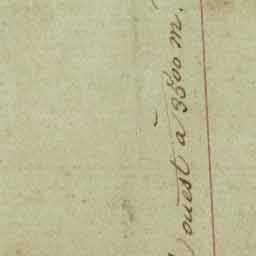 ouest à 3500 m.